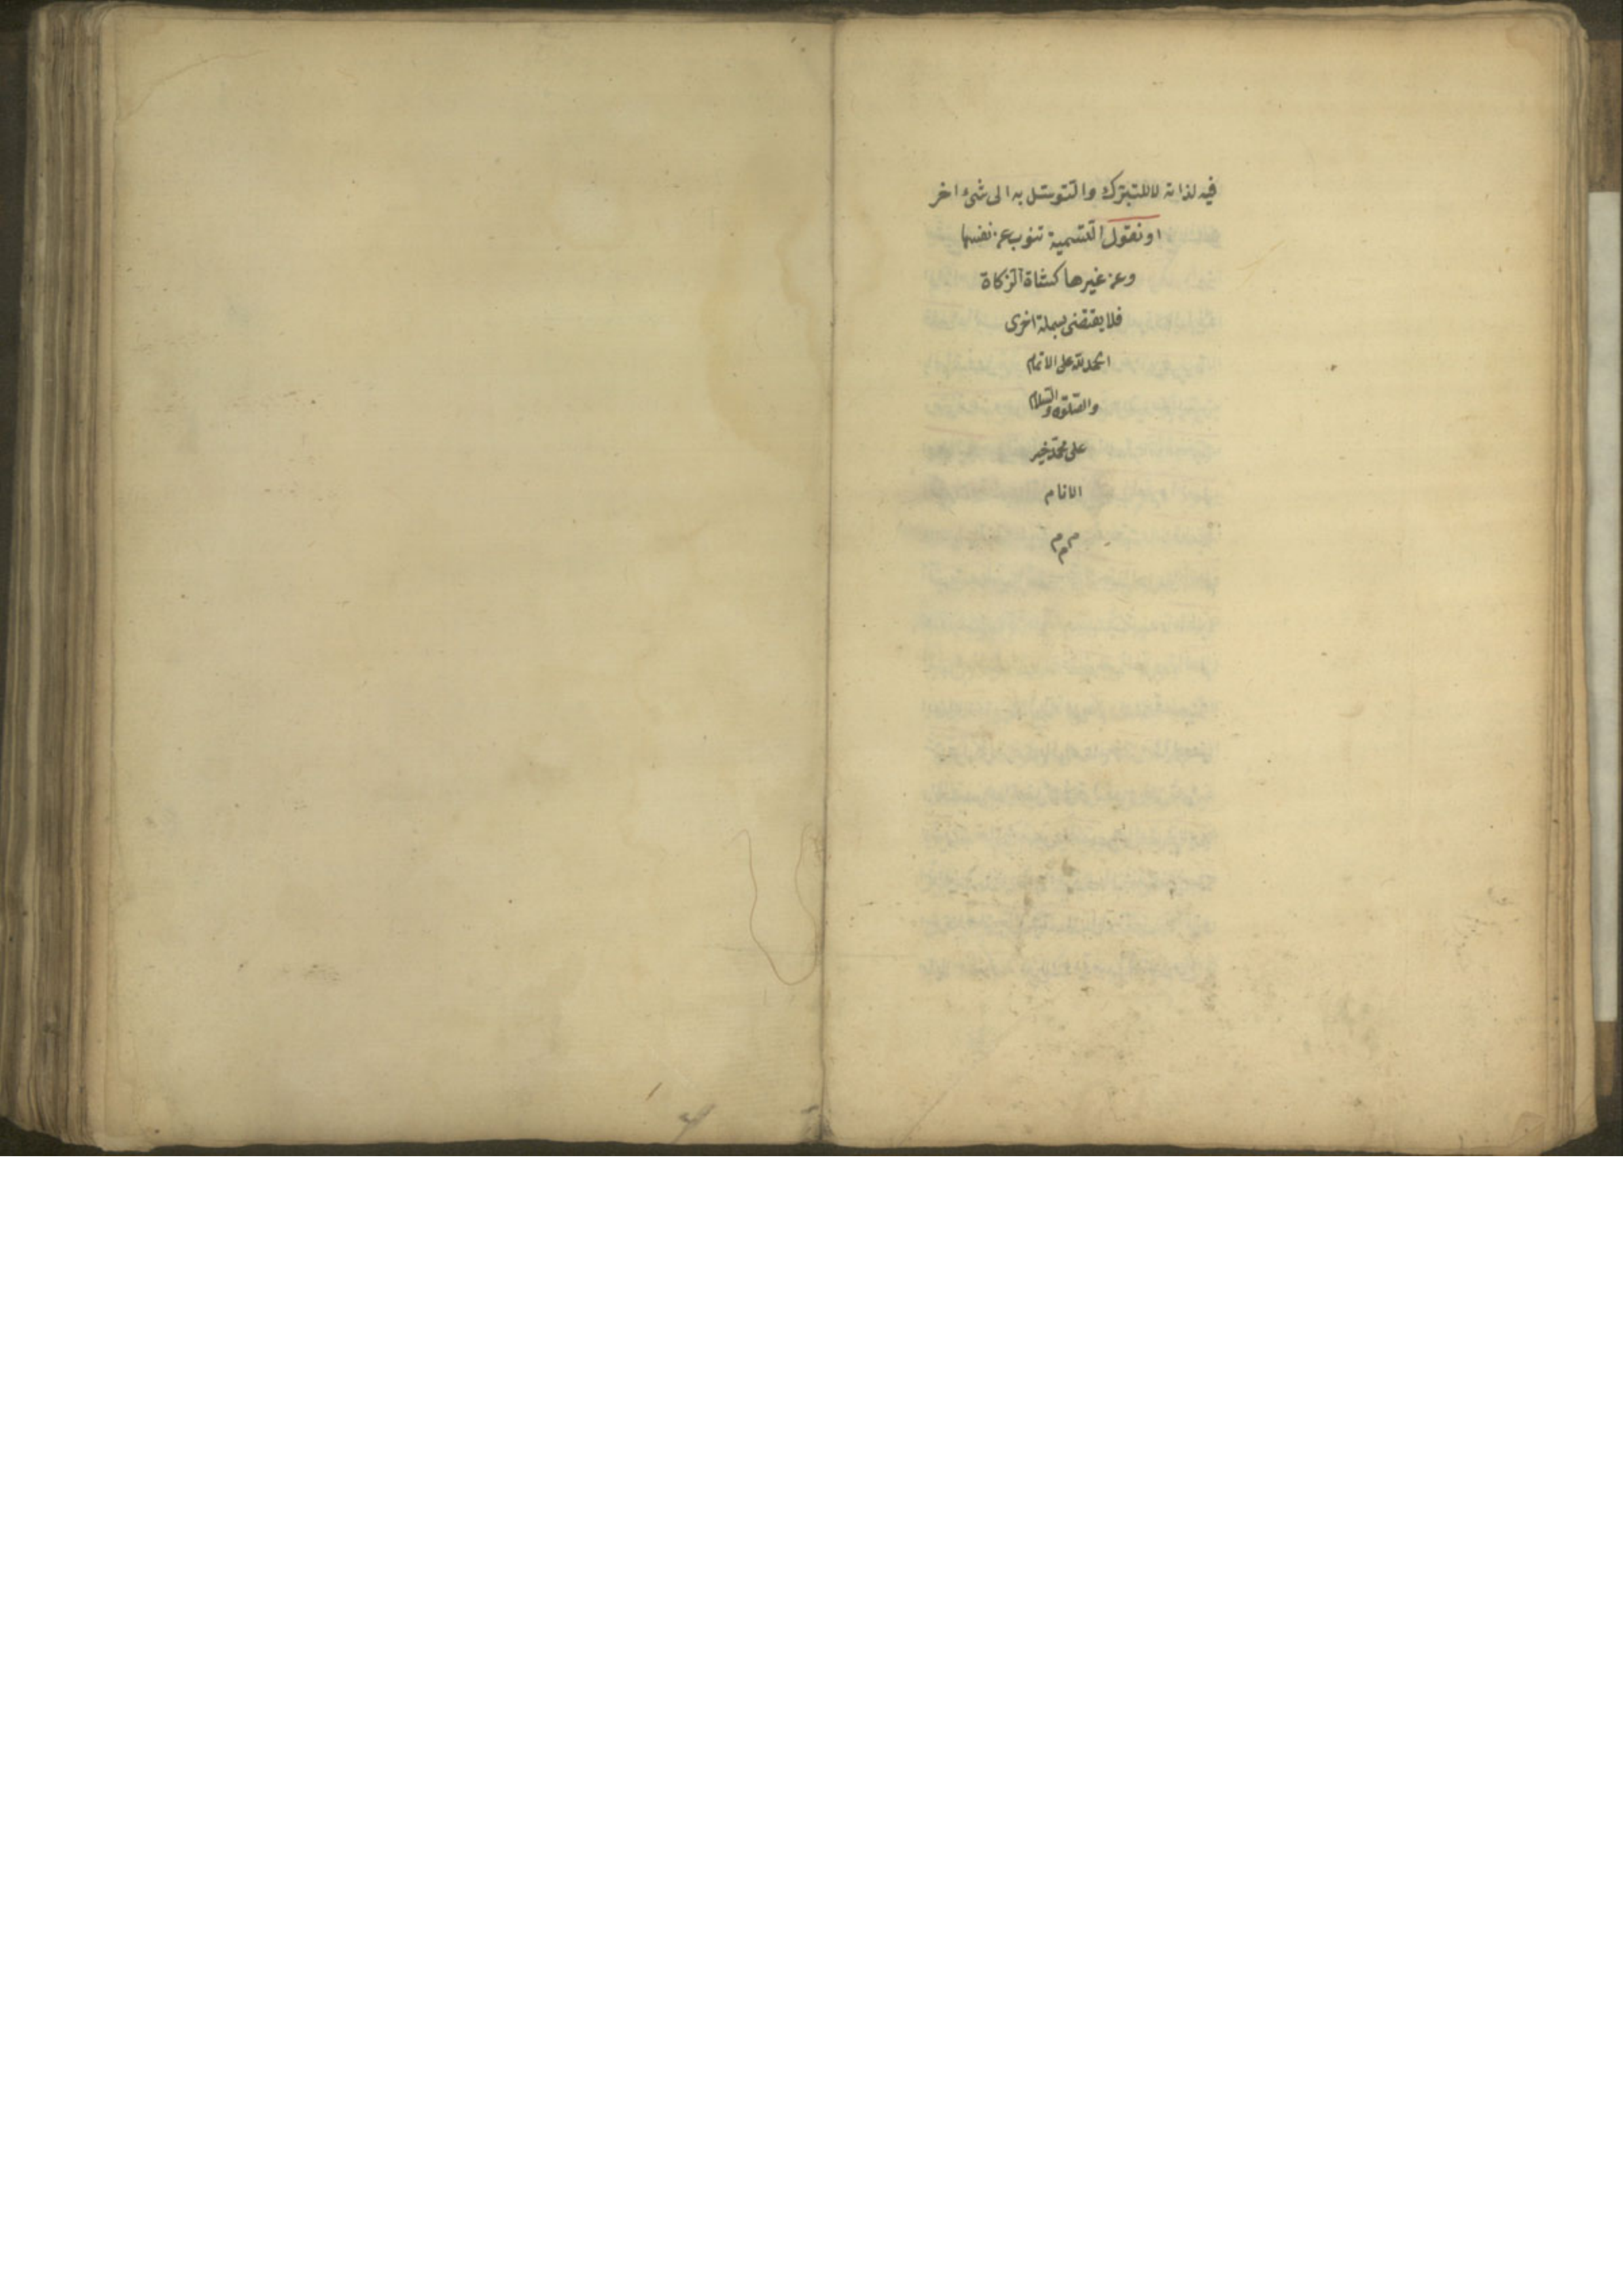 فيه لذاته لا للتبرّك والتوسّل به الى شئ اخر
او نقول التسمية تنوب عن نفسها
وعن غيرها كشاة الزكاة
فلا يقتضى بسملة اخرى
الحمد لله على الاتمام
والصّلوة والسّلام
على محمّد خير
الانام
م م م